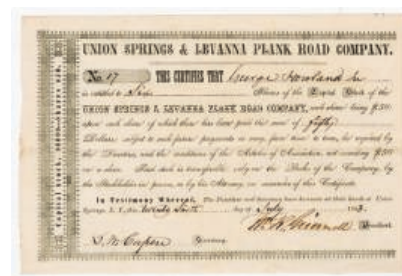 UNION SPRINGS & LEVANNA PLANK ROAD COMPANY.
No. 17 THIS CERTIFIES THAT George Howland Jr
is entitled to Shares of the Capital Stock of the
UNION SPRINGS & LEVANNA PLANK ROAD COMPANY, each share being $50
upon each share of which there has been paid the sum of fifty
Dollars, subject to such future payments as may, from time to time, be required by
the Directors, and the conditions of the Articles of Association, not exceeding $50
on a share. Stock is transferable only on the Books of the Company, by
the Stockholder in person, or by his Attorney, on surrender of this Certificate.
In Testimony Whereof, The President and Secretary have
Springs, N. Y., this twenty Sixth day of July
Wm. R. Grinnell President.
Secretary.
Capital Stock,